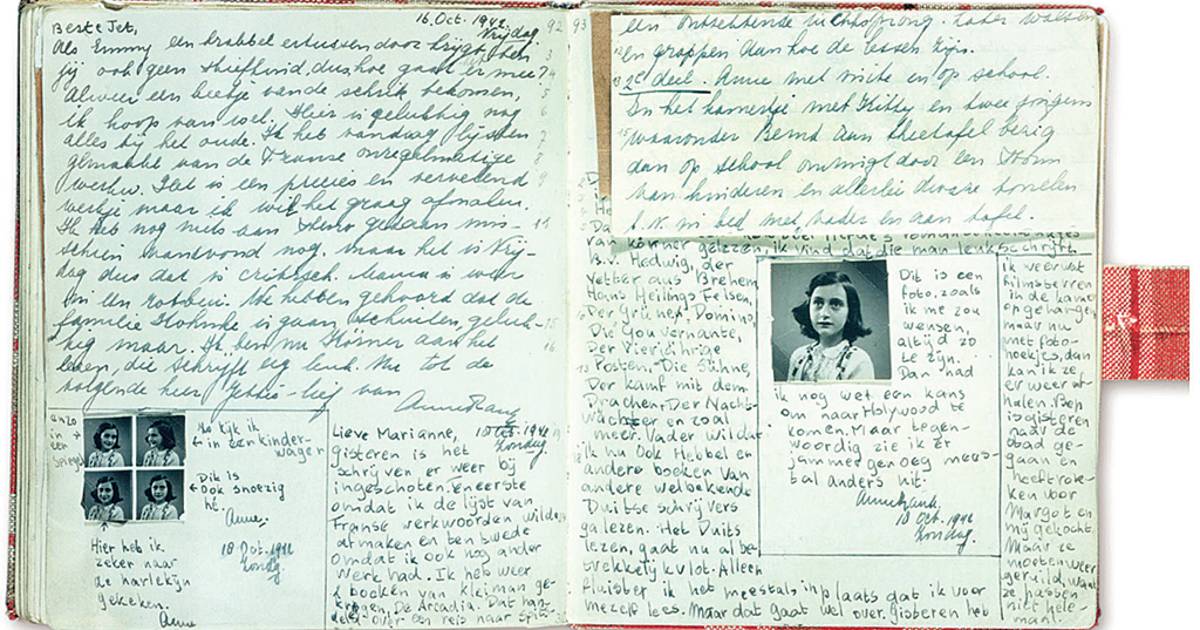 Beste Jet,
16. Oct. 1942.
Vrijdag
92
Als Emmy een krabbel ertussendoor krijgt, ben
jij ook geen stiefkind, dus hoe gaat er mee?
Alweer een beetje van de schrik bekomen,
ik hoop van wel. Hier is gelukkig nog
alles bij het oude. Ik heb vandaag lijsten
gemaakt van de Franse onregelmatige
werkw. Het is een precies en vervelend
werkje maar ik wil het graag afmaken.
Ik heb nog niets aan steno gedaan mis-
schien vanavond nog. maar het is Vrij-
dag dus dat is critisch. Mama is weer
in een robbeui. We hebben gehoord dat de
familie is gaan schuilen, geluk-
kig maar. Ik ben nu Körner aan het
lezen, die schrijft erg leuk. Nu tot de
volgende keer Jettie-lief van
Anne Frank
en zo
in
een
spiegel
Nu kijk ik
in een kinder-
wagen
Dit is
ook snoezig
hé.
Anne.
Hier heb ik
zeker naar
de harlekijn
gekeken.
Anne
18 Oct. 1942
Zondag.
Lieve Marianne,
18 Oct. 1942
Zondag.
gisteren is het
schrijven er weer bij
ingeschoten. Eneerste
omdat ik de lijst van
Franse werkwoorden wilde
afmaken en ten twede
omdat ik ook nog ander
werk had. Ik heb weer
2 boeken van kleiman ge-
kregen, De Arcadia. Dat han-
delt over een reis naar Spits-
93
een ontzettende luchtsprong. Later walsen
En grappen dan hoe de lessen zijn.
2e deel. Anne met visite en op school.
In het kamertje met Kitty en twee jongens
waaronder Bernd aan theetafel bezig
dan op school omringt door een stoom
van kinderen en allerlei dwaze tonelen
b.v. in bed met vader en aan tafel.
van körner gelezen, ik vind dat die man leuk schrijft.
B.v. Hedwig, der
Vetter aus Bremen
Hans Heilings Felsen,
Der Grüne Domino,
Die Gouvernante,
Der Vierjährige
Posten, Die Sühne,
Der Kampf mit dem
Drachen, Der Nacht-
wächter en zoal
meer. Vader wil dat
ik nu ook Hebbel en
andere boeken van
andere welbekende
Duitse schrijvers
ga lezen. Het Duits
lezen, gaat nu al be-
trekkelijk vlot. Alleen
fluister ik het meestal, inplaats dat ik voor
mezelf lees. Maar dat gaat wel over. gisteren heb
Dit is een
foto, zoals
ik me zou
wensen,
altijd zo
te zijn.
Dan had
ik nog wel een kans
om naar Holywood te
komen. Maar tegen-
woordig zie ik er
jammer genoeg mees-
tal anders uit.
Anne Frank.
18 Oct. 1942
Zondag.
ik weer wat
filmsterren
in de kamer
opgehangen,
maar nu
met foto-
hoekjes, dan
kan ik ze
er weer af-
halen. Bep
is gisteren
naar de
stad ge-
gaan en
heeft rok-
ken voor
Margot en
mij gekocht.
Maar ze
moeten weer
geruild, want
ze passen
niet hele-
maal.